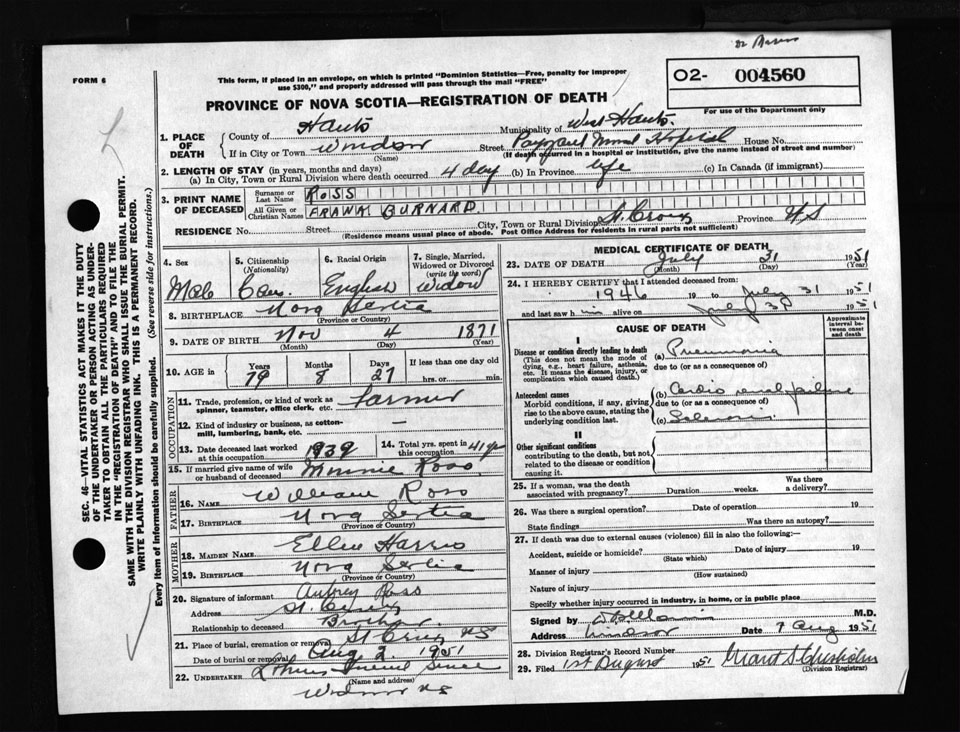 FORM 6
This form, if placed in an envelope, on which is printed "Dominion Statistics—Free, penalty for improper
use $300," and properly addressed will pass through the mail "FREE"
O2- 004560
For use of the Department only
PROVINCE OF NOVA SCOTIA—REGISTRATION OF DEATH
SEC. 46—VITAL STATISTICS ACT MAKES IT THE DUTY
OF THE UNDERTAKER OR PERSON ACTING AS UNDER-
TAKER TO OBTAIN ALL THE PARTICULARS REQUIRED
IN THE "REGISTRATION OF DEATH" AND TO FILE THE
SAME WITH THE DIVISION REGISTRAR WHO SHALL ISSUE THE BURIAL PERMIT.
WRITE PLAINLY WITH UNFADING INK. THIS IS A PERMANENT RECORD.
Every item of Information should be carefully supplied. (See reverse side for instructions.)
1. PLACE OF DEATH
County of Hants Municipality of West Hants
If in City or Town Windsor Street Payzant Mem Hospital House No.
(Name) (If death occurred in a hospital or institution, give the name instead of street and number)
2. LENGTH OF STAY (in years, months and days)
(a) In City, Town or Rural Division where death occurred 4 day (b) In Province life (c) In Canada (if immigrant)
3. PRINT NAME OF DECEASED
Surname or Last Name ROSS
All Given or Christian Names FRANK BURNARD
RESIDENCE No. Street City, Town or Rural Division St. Croix Province N.S
(Residence means usual place of abode. Post Office Address for residents in rural parts not sufficient)
4. Sex Male
5. Citizenship (Nationality) Can.
6. Racial Origin English
7. Single, Married, Widowed or Divorced (write the word) Widow
8. BIRTHPLACE Nova Scotia
(Province or Country)
9. DATE OF BIRTH Nov 4 1871
(Month) (Day) (Year)
10. AGE in Years 79 Months 8 Days 27 If less than one day old hrs. or min.
OCCUPATION
11. Trade, profession, or kind of work as spinner, teamster, office clerk, etc. Farmer
12. Kind of industry or business, as cotton-mill, lumbering, bank, etc. —
13. Date deceased last worked at this occupation 1939
14. Total yrs. spent in this occupation 41 yr
15. If married give name of wife or husband of deceased Minnie Ross
FATHER
16. NAME William Ross
17. BIRTHPLACE Nova Scotia
(Province or Country)
MOTHER
18. MAIDEN NAME Ellen Harris
19. BIRTHPLACE Nova Scotia
(Province or Country)
20. Signature of informant Aubrey Ross
Address St. Croix
Relationship to deceased Brother
21. Place of burial, cremation or removal St Croix NS
Date of burial or removal Aug 2. 1951
22. UNDERTAKER
(Name and address)
Windsor NS
MEDICAL CERTIFICATE OF DEATH
23. DATE OF DEATH July 31 1951
(Month) (Day) (Year)
24. I HEREBY CERTIFY that I attended deceased from:
1946 19 to July 31 1951
and last saw him alive on July 30 1951
CAUSE OF DEATH
Approximate interval between onset and death
I
Disease or condition directly leading to death (a) Pneumonia
(This does not mean the mode of dying, e.g., heart failure, asthenia, etc. It means the disease, injury, or complication which caused death.)
due to (or as a consequence of)
Antecedent causes (b) Cardio renal failure
Morbid conditions, if any, giving rise to the above cause, stating the underlying condition last.
due to (or as a consequence of)
(c) Sclerosis
II
Other significant conditions
contributing to the death, but not related to the disease or condition causing it.
25. If a woman, was the death associated with pregnancy? Duration weeks. Was there a delivery?
26. Was there a surgical operation? Date of operation 19
State findings Was there an autopsy?
27. If death was due to external causes (violence) fill in also the following:—
Accident, suicide or homicide? Date of injury 19
(State which)
Manner of injury
(How sustained)
Nature of injury
Specify whether injury occurred in industry, in home, or in public place
Signed by M.D.
Address Windsor Date 1 Aug 1951
28. Division Registrar's Record Number
29. Filed 1st August 1951 Grant S Chisholm
(Division Registrar)